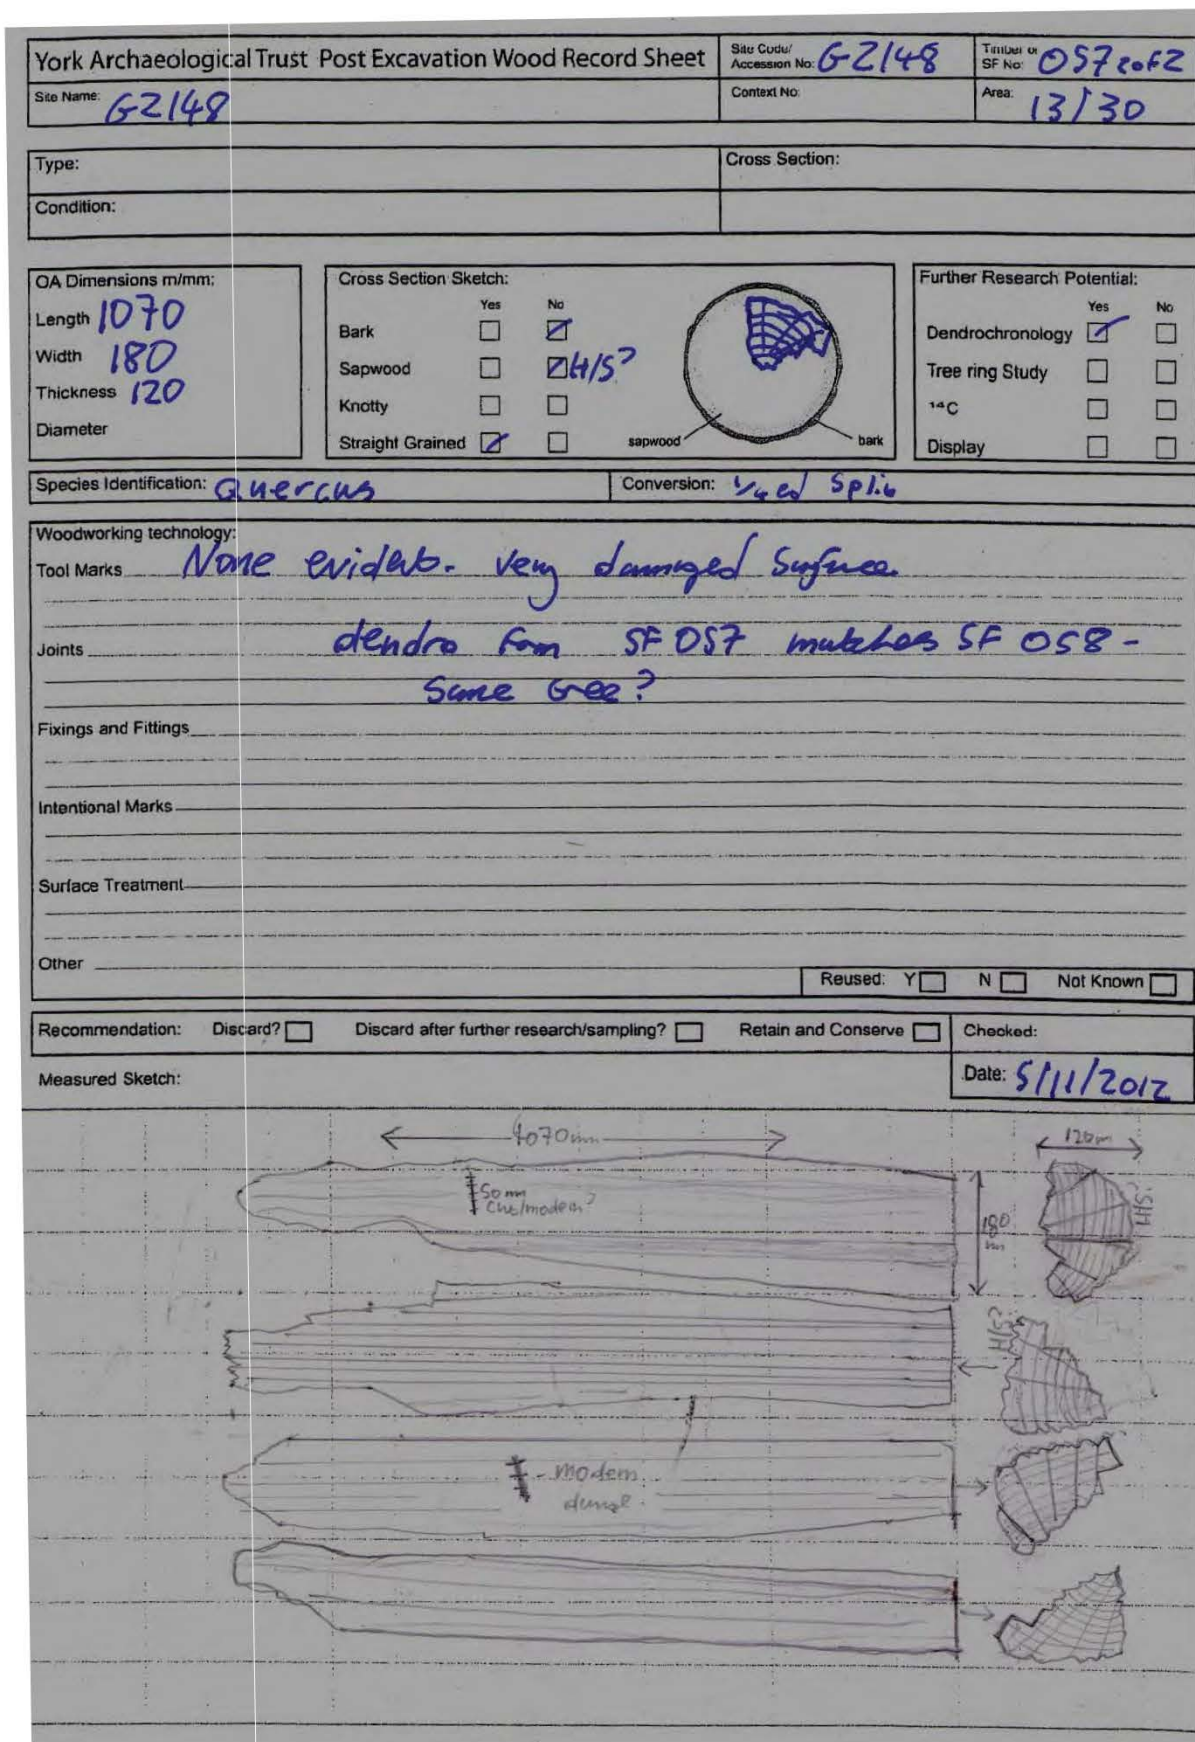 York Archaeological Trust Post Excavation Wood Record Sheet
Site Code/ Accession No: GZ148
Timber or SF No: 057 2 of 2
Site Name: GZ148
Context No:
Area: 13/30
Type:
Cross Section:
Condition:
OA Dimensions m/mm:
Length 1070
Width 180
Thickness 120
Diameter
Cross Section Sketch:
Yes No
Bark
Sapwood H/S?
Knotty
Straight Grained
sapwood
bark
Further Research Potential:
Yes No
Dendrochronology
Tree ring Study
¹⁴C
Display
Species Identification: Quercus
Conversion: 1/4ed Split
Woodworking technology:
Tool Marks None evident. very damaged Surface.
Joints dendro from SF 057 matches SF 058 -
Same tree?
Fixings and Fittings
Intentional Marks
Surface Treatment
Other
Reused: Y N Not Known
Recommendation: Discard? Discard after further research/sampling? Retain and Conserve
Checked:
Measured Sketch:
Date: 5/11/2012
1070mm
120m
50mm
Cut/modern?
180
mm
H/S?
H/S?
- modern